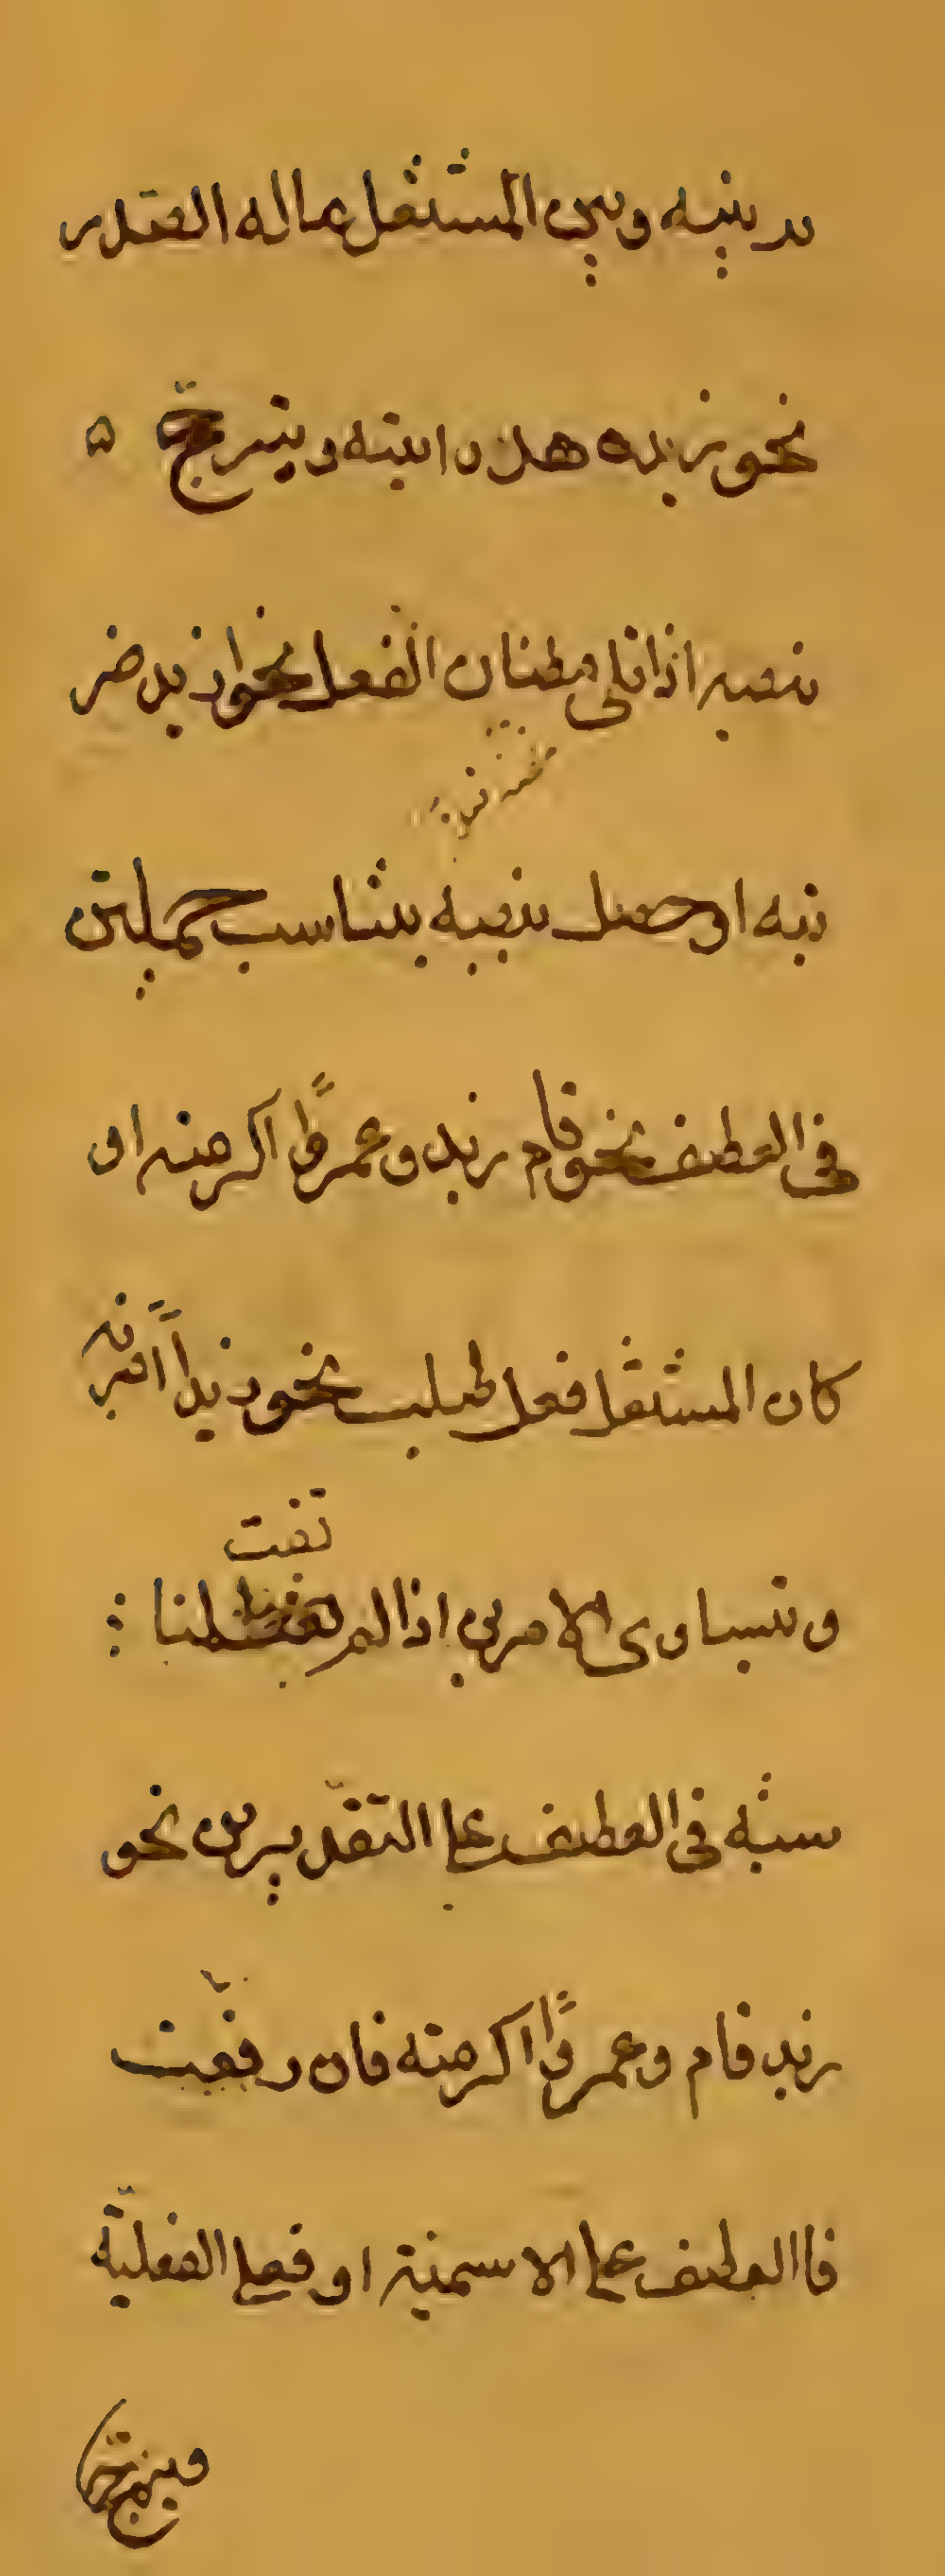 بينه وبين المشتغل ماله الصدر
نحو زيد هل رايته ويترجح
نصبه اذا تلى مظان الفعل نحو اذ زيد ضر
بته او حصل بنصبه تناسب جملتين
فى العطف نحو قام زيد وعمروًا اكرمته او
كان المشتغل فعل طلب نحو زيداً اضربه
وتتساوى الامرين اذا لم تفت المنا
سبة فى العطف على التقديرين نحو
زيد قام وعمروًا اكرمته فان رفعت
فاالعطف على الاسمية او فعلى الفعلية